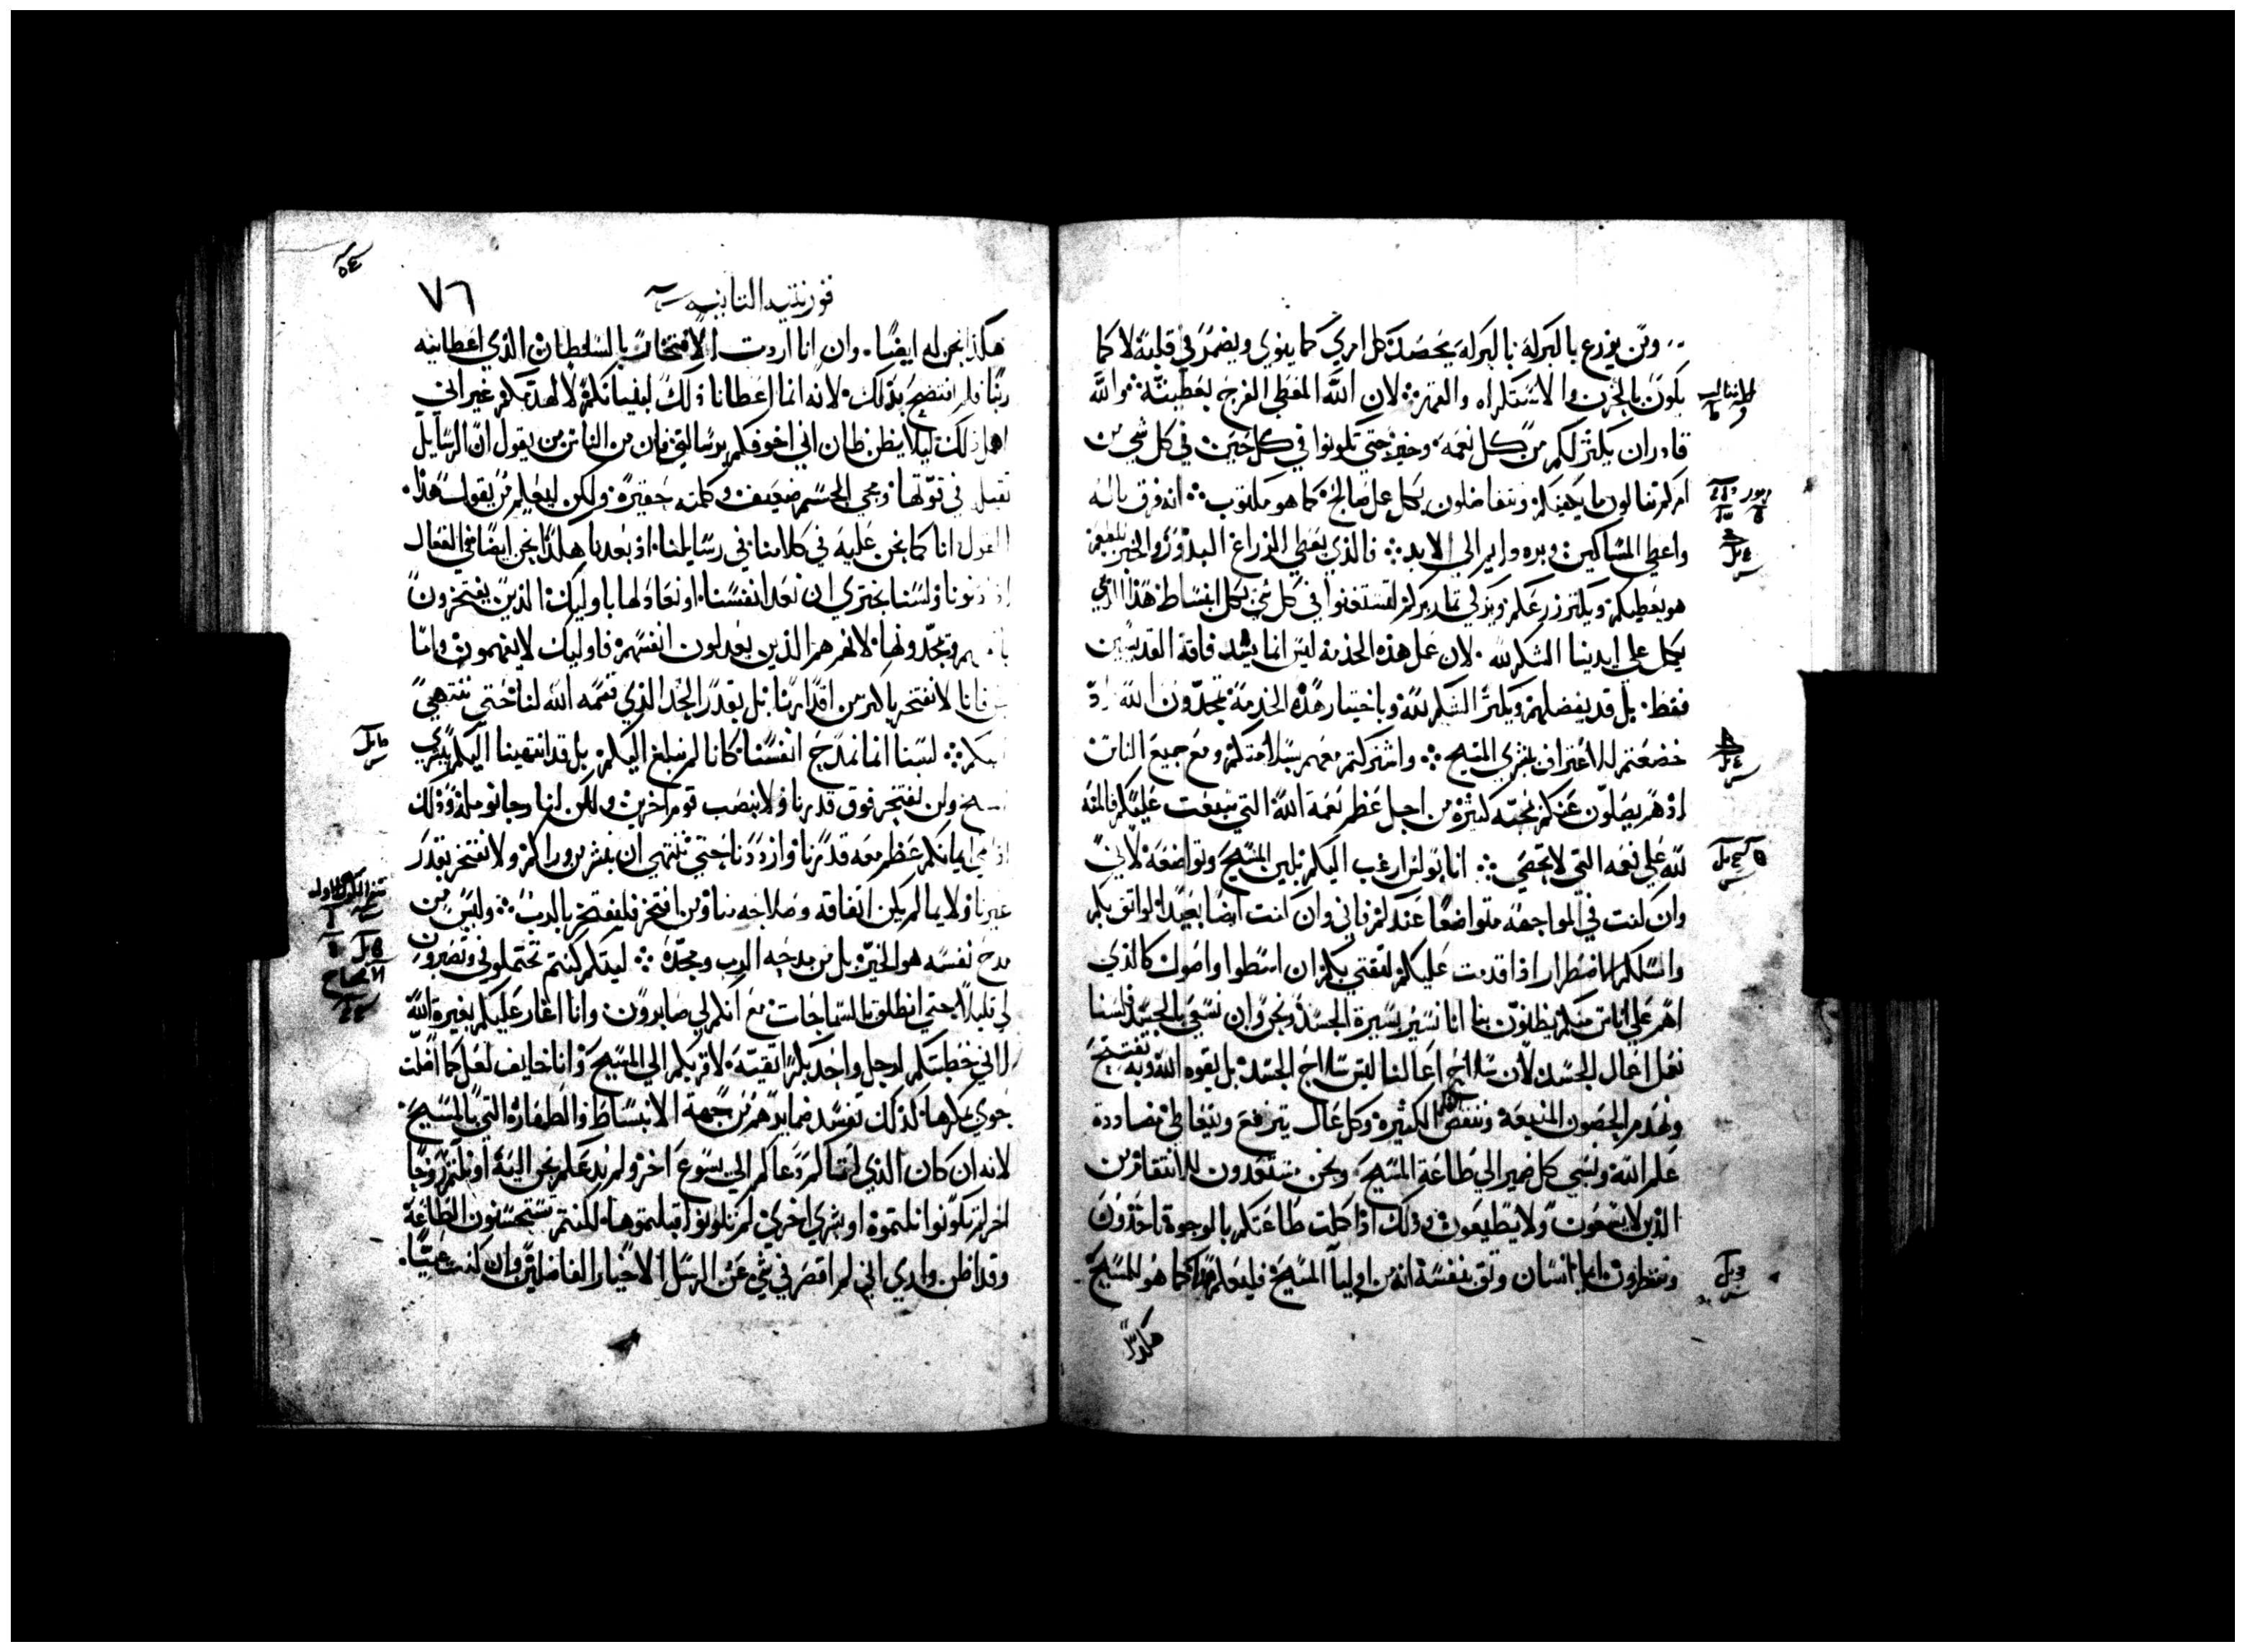 ومن يزرع بالبركه بالبركه يحصد كل امري كما ينوي ويضمر في قلبه لا كما
يكون بالحزن والاستكراه والقهر لان الله المعطي الفرح بعطيته والله
قادر ان يكثر لكم من كل نعمه وخير حتي تكونوا في كل حين في كل شي من
امركم تنالون ما يكفيكم وتتفاضلون بكل عمل صالح كما هو مكتوب انه فرق ماله
واعطي المساكين وبره دايم الي الابد فالذي يعطي الزراع البذر والخبز
هو يعطيكم ويكثر زرعكم ويزكي ثمار بركم لتستغنوا في كل شي بكل انبساط هذا الذي
يكمل علي ايدينا الشكر لله لان عمل هذه الخدمة ليس انما يسد فاقة القديسين
فقط بل قد يفضلهم ويكثر الشكر لله وباختبار هذه الخدمة تمجدون الله اذ
خضعتم للاعتراف ببشري المسيح واشتركتم معهم بسلامتكم ومع جميع الناس
اذ هم يصلون عنكم بمحبة كثيرة من اجل عظم نعمة الله التي سبغت عليكم فالمنه
لله علي نعمه التي لا تحصي انا بولس ارغب اليكم بلين المسيح وتواضعه لاني
وان كنت في المواجهة متواضعا عندكم فاني وان كنت ايضا بعيدا لواثق بكم
واسلكم الا اضطر اذا قدمت عليكم لثقتي بكم ان اسطوا واصول كالذي
اهم علي اناس منكم يظنون بنا انا نسير بسيرة الجسد ونحن وان نسعي بالجسد فلسنا
نعمل اعمال الجسد لان سلاح اعمالنا ليس سلاح الجسد بل بقوه الله وبه نفتتح
ونهدم الحصون المنيعة وننقض الكثيرة وكل عال يترفع ويتعاطي مضاددة
علم الله ونسبي كل ضمير الي طاعة المسيح ونحن مستعدون للانتقام من
الذين لا يسمعون ولا يطيعون وذلك اذا كملت طاعتكم بالوجوه تاخذون
وتنظرون ايما انسان وثق بنفسه انه من اوليا المسيح فليعلم هذا كما هو للمسيح
هكذا
قورنتيه الثانيه
٧٦
هكذا نحن له ايضا وان انا اردت الافتخار بالسلطان الذي اعطانيه
ربنا فلم افتضح بذلك لانه انما اعطانا ذلك لبنيانكم لا لهدمكم غير اني
اهمل ذلك ليلا يظن ظان اني اخوفكم برسالتي فان من الناس من يقول ان الرسايل
ثقيلة في قوتها ومجي الجسم ضعيف وكلمته حقيرة ولكن ليعلم من يقول هذا
القول انا كما نحن عليه في كلامنا في رسايلنا اذ بعدنا هكذا نحن ايضا في الفعال
اذا دنونا ولسنا نجتري ان نعد انفسنا او نعادلها باوليك الذين يفتخرون
ويمجدونها لانهم هم الذين يعدلون انفسهم فاوليك لا يفهمون واما
نحن فانا لا نفتخر باكثر من اقدارنا بل بقدر الحد الذي قسمه الله لنا حتي ننتهي
اليكم لسنا انما نمدح انفسنا كانا لم نبلغ اليكم بل قد انتهينا اليكم ببشري
المسيح ولن نفتخر فوق قدرنا ولا بنصب قوم اخرين ولكن لنا رجا
ايمانكم عظم معه قدرنا وازددنا حتي ننتهي ان نبشر من وراكم ولا نفتخر بقدر
غيرنا ولا بما لم يكن اتفاقه وصلاحه منا ومن افتخر فليفتخر بالرب وليس من
مدح نفسه هو الخير بل من مدحه الرب ومجده ليتكم كنتم تحتملوني وتصبرون
لي قليلا حتي انطلق بالسماجات مع انكم لي صابرون وانا اغار عليكم بغيرة الله
لاني خطبتكم لرجل واحد بكرا نقيه لاقربكم الي المسيح وانا خايف لعل كما اضلت
حوي بمكرها كذلك تفسد ضمايرهم من جهة الانبساط والطهارة التي بالمسيح
لانه ان كان الذي اتاكم دعاكم الي يسوع اخر ولم ندعكم نحن اليه او نلتم روحا
اخر لم تكونوا نلتموه او بشري اخري لم تكونوا قبلتموها لكنتم تستحسنون الطاعة
وقد اظن واري اني لم اقصر في شي عن الرسل الاخيار الفاضلين وان كنت عييا